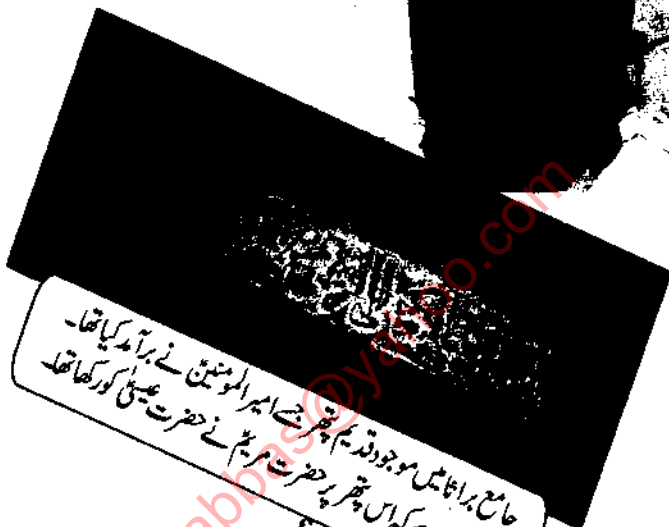 جامع براثا میں موجود قدیم پتھر جسے امیر المومنینؑ نے برآمد کیا تھا۔
کہ اس پتھر پر حضرت مریمؑ نے حضرت عیسیٰؑ کو رکھا تھا۔
abbas@yahoo.com